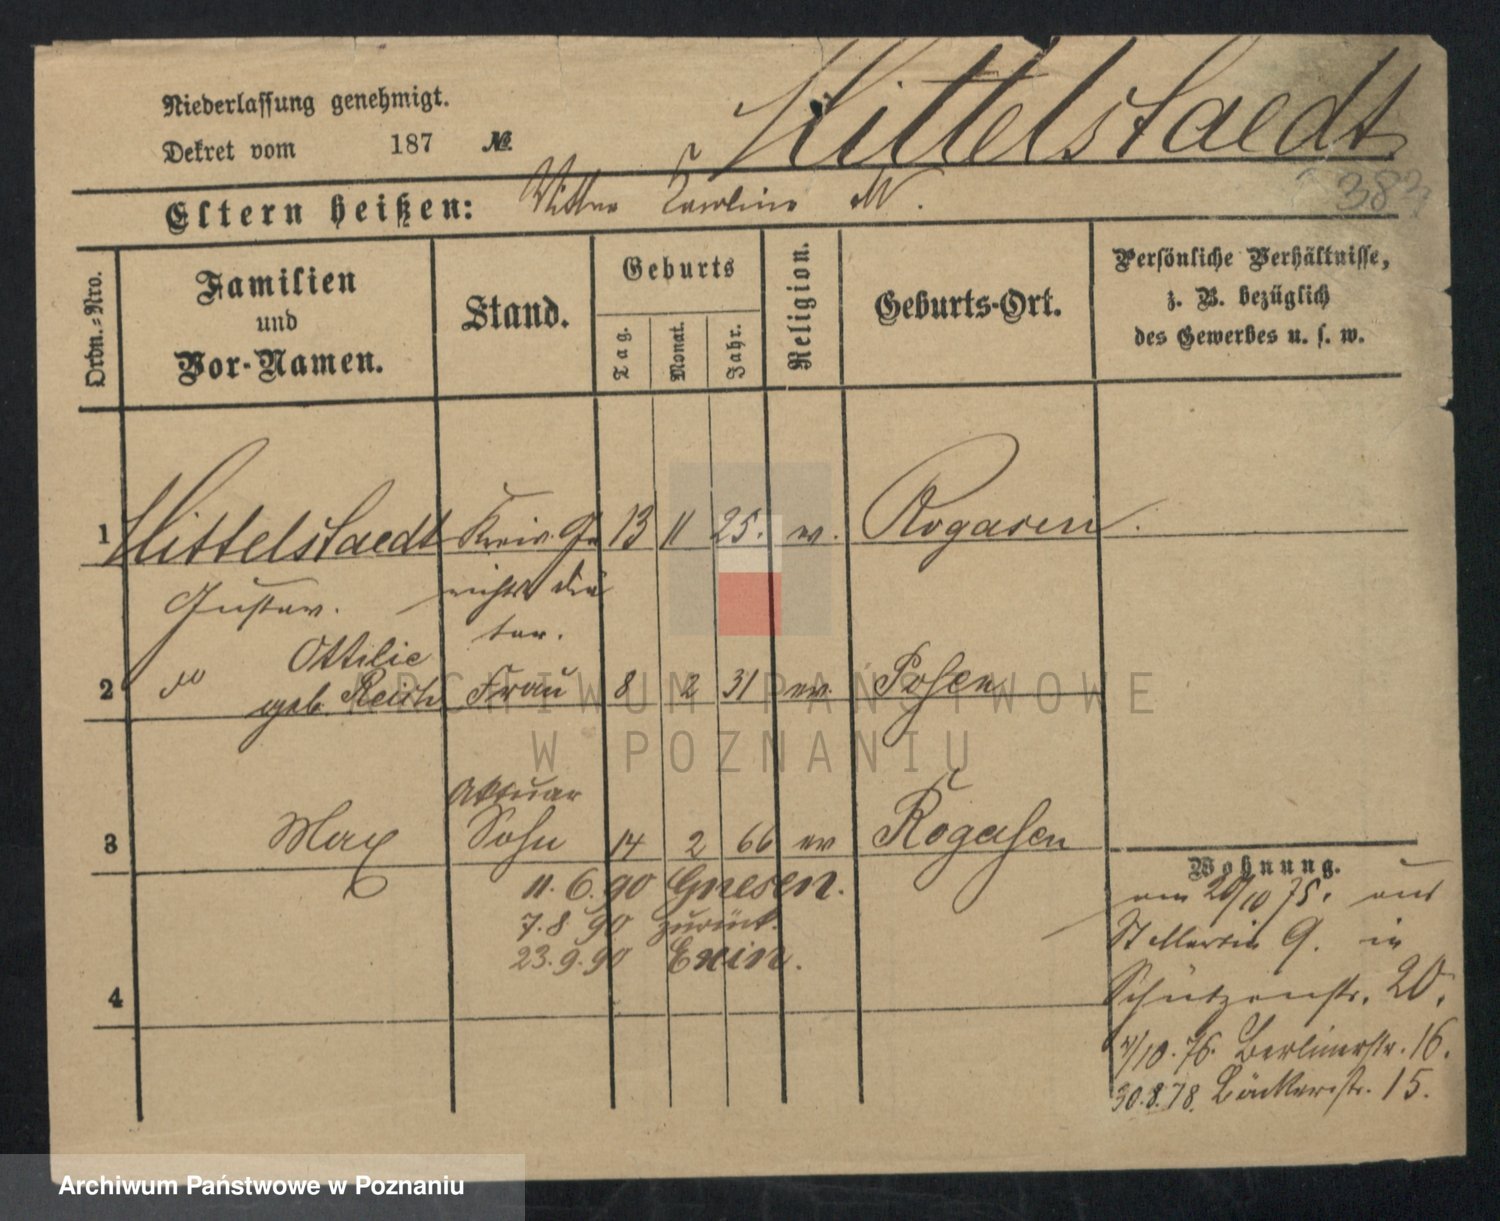 Niederlassung genehmigt.
Dekret vom 187 №.
Mittelstaedt
383
Eltern heißen: Karoline M.
Ordn.-Nro.
Familien
und
Vor-Namen.
Stand.
Geburts
Tag.
Monat.
Jahr.
Religion.
Geburts-Ort.
Persönliche Verhältnisse,
z. B. bezüglich
des Gewerbes u. s. w.
1 Mittelstaedt Kreis-Ge 13 11 25. ev. Rogasen.
Gustav. richts Diä
tar.
2 Ottilie
geb. Reich Frau 8 2 31 ev. Posen
Aktuar
3 Max Sohn 14 2 66 ev Rogasen
11. 6. 90 Gnesen.
7. 8. 90 zurück.
23. 9. 90 Exin.
4
Wohnung.
am 20/10 75. aus
St Martin 9. in
Schützenstr. 20.
4/10. 76. Berlinerstr. 16.
30.8.78. Bäckerstr. 15.
ARCHIWUM PAŃSTWOWE
W POZNANIU
Archiwum Państwowe w Poznaniu